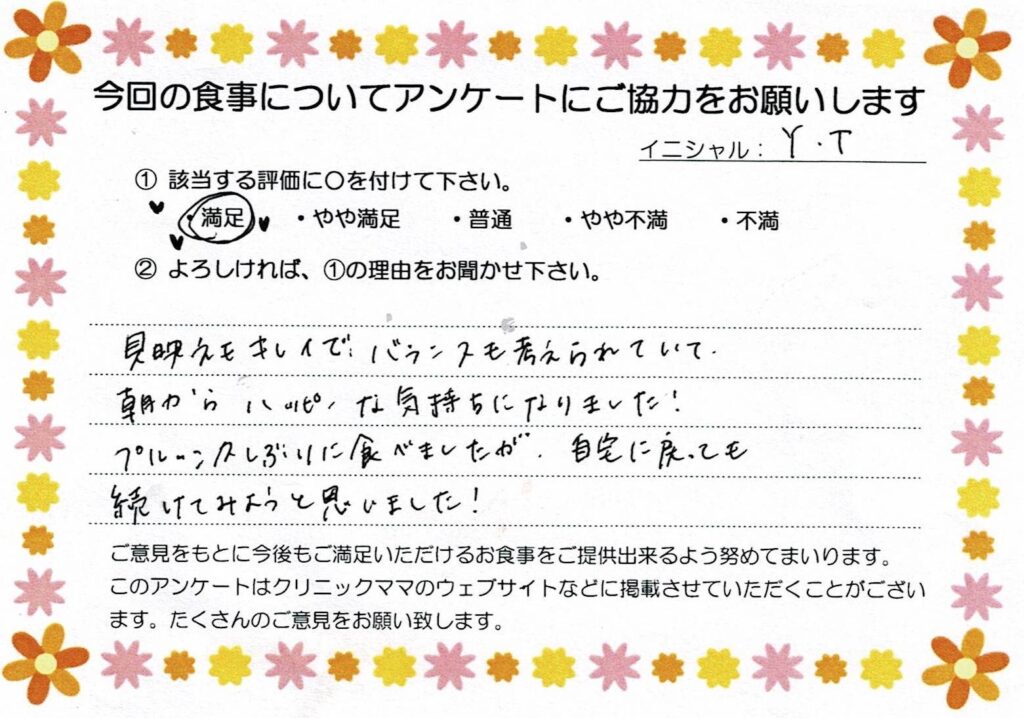 今回の食事についてアンケートにご協力をお願いします
イニシャル： Y.T
① 該当する評価に〇を付けて下さい。
・満足 ・やや満足 ・普通 ・やや不満 ・不満
② よろしければ、①の理由をお聞かせ下さい。
見映えもキレイで、バランスも考えられていて、
朝から ハッピーな気持ちになりました！
プルーン久しぶりに食べましたが、自宅に戻っても
続けてみようと思いました！
ご意見をもとに今後もご満足いただけるお食事をご提供出来るよう努めてまいります。
このアンケートはクリニックママのウェブサイトなどに掲載させていただくことがござい
ます。たくさんのご意見をお願い致します。